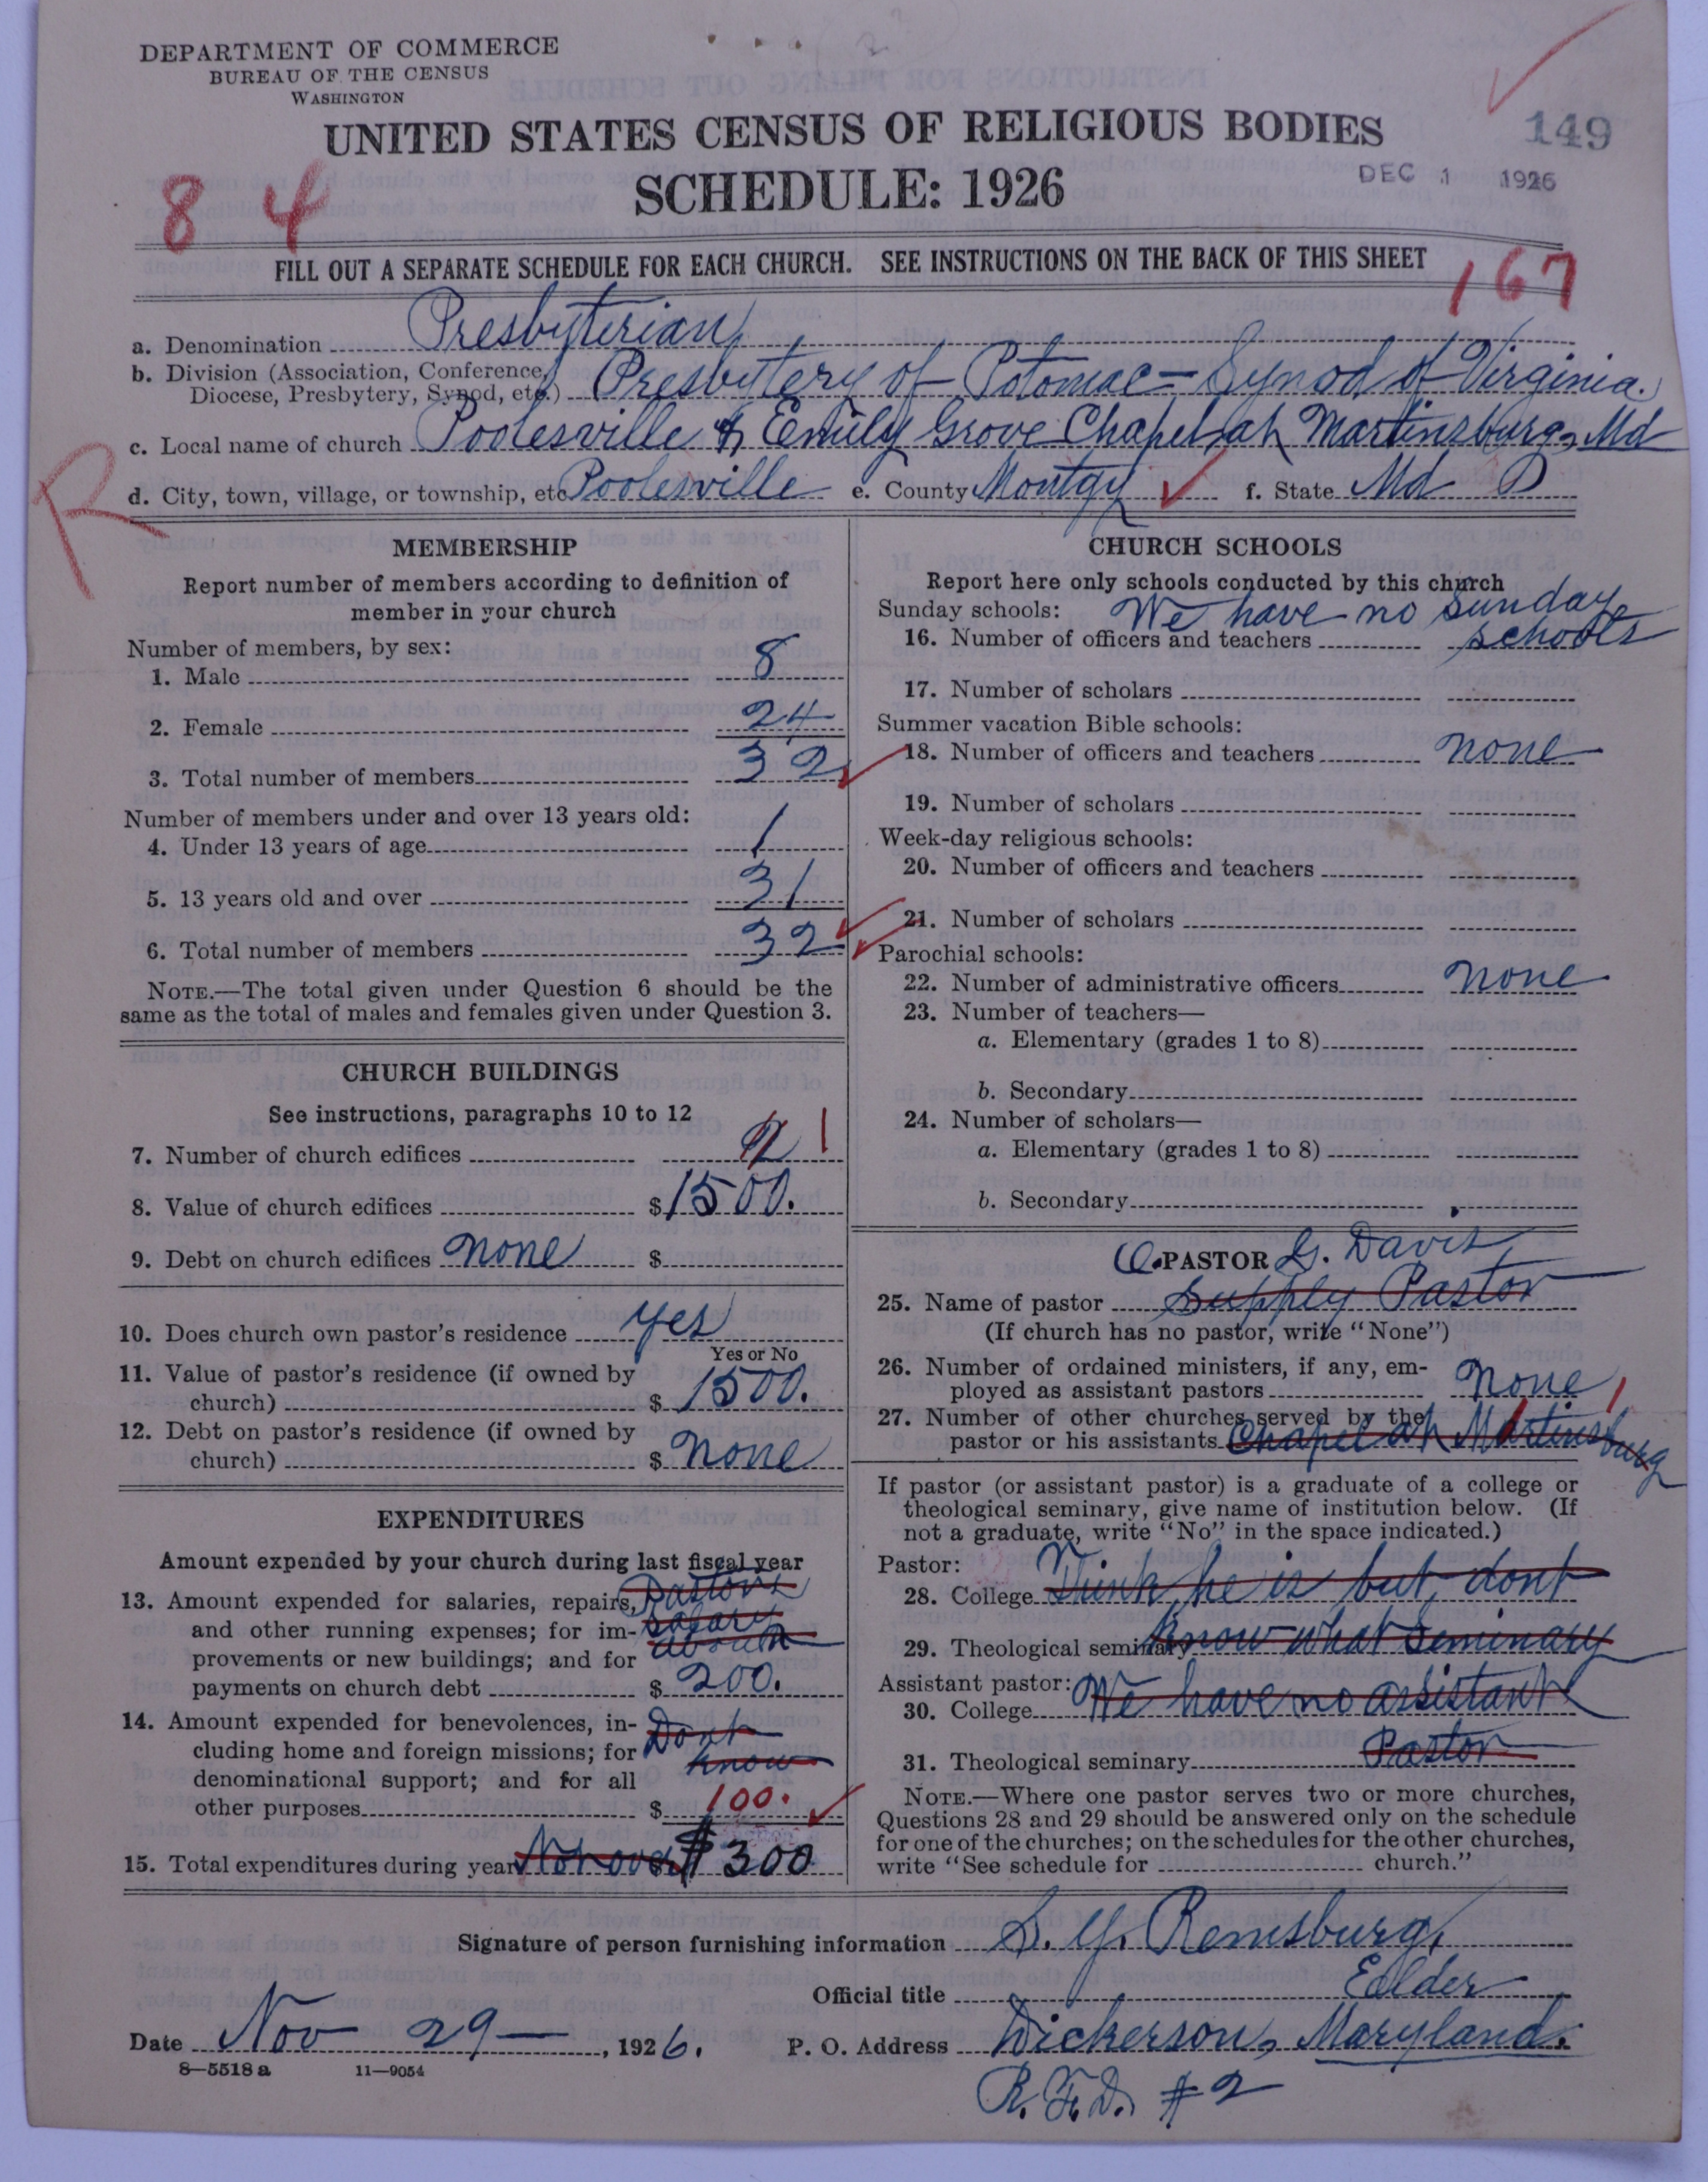 DEPARTMENT OF COMMERCE
BUREAU OF THE CENSUS
WASHINGTON
UNITED STATES CENSUS OF RELIGIOUS BODIES
149
SCHEDULE: 1926
DEC 1 1926
8 4
FILL OUT A SEPARATE SCHEDULE FOR EACH CHURCH. SEE INSTRUCTIONS ON THE BACK OF THIS SHEET
167
a. Denomination Presbyterian
b. Division (Association, Conference,
Diocese, Presbytery, Synod, etc.) Presbytery of Potomac - Synod of Virginia.
c. Local name of church Poolesville & Emily Grove Chapel at Martinsburg, Md
d. City, town, village, or township, etc. Poolesville e. County Montgy f. State Md
R
MEMBERSHIP
Report number of members according to definition of
member in your church
Number of members, by sex:
1. Male 8
2. Female 24
3. Total number of members 32
Number of members under and over 13 years old:
4. Under 13 years of age 1
5. 13 years old and over 31
6. Total number of members 32
NOTE.—The total given under Question 6 should be the
same as the total of males and females given under Question 3.
CHURCH BUILDINGS
See instructions, paragraphs 10 to 12
7. Number of church edifices 2 1
8. Value of church edifices $ 1500.
9. Debt on church edifices none $
10. Does church own pastor's residence yes
Yes or No
11. Value of pastor's residence (if owned by
church) $ 1500.
12. Debt on pastor's residence (if owned by
church) $ none
EXPENDITURES
Amount expended by your church during last fiscal year
13. Amount expended for salaries, repairs, Pastors
and other running expenses; for im- salary
provements or new buildings; and for about
payments on church debt $ 200.
14. Amount expended for benevolences, in- Dont
cluding home and foreign missions; for know
denominational support; and for all
other purposes $ 100.
15. Total expenditures during year Not over $ 300
CHURCH SCHOOLS
Report here only schools conducted by this church
Sunday schools: We have no Sunday
16. Number of officers and teachers schools
17. Number of scholars
Summer vacation Bible schools:
18. Number of officers and teachers none
19. Number of scholars
Week-day religious schools:
20. Number of officers and teachers
21. Number of scholars
Parochial schools:
22. Number of administrative officers none
23. Number of teachers—
a. Elementary (grades 1 to 8)
b. Secondary
24. Number of scholars—
a. Elementary (grades 1 to 8)
b. Secondary
PASTOR G. Davis
25. Name of pastor Supply Pastor
(If church has no pastor, write "None")
26. Number of ordained ministers, if any, em-
ployed as assistant pastors none
27. Number of other churches served by the 1
pastor or his assistants Chapel at Martinsburg
If pastor (or assistant pastor) is a graduate of a college or
theological seminary, give name of institution below. (If
not a graduate, write "No" in the space indicated.)
Pastor:
28. College Think he is but, dont
29. Theological seminary know what Seminary
Assistant pastor:
30. College We have no assistant
31. Theological seminary Pastor
NOTE.—Where one pastor serves two or more churches,
Questions 28 and 29 should be answered only on the schedule
for one of the churches; on the schedules for the other churches,
write "See schedule for church."
Signature of person furnishing information S. Y. Remsburg,
Official title Eelder
Date Nov 29 —, 1926. P. O. Address Dickerson, Maryland.
8—5518 a 11—9054
R. F. D. #2